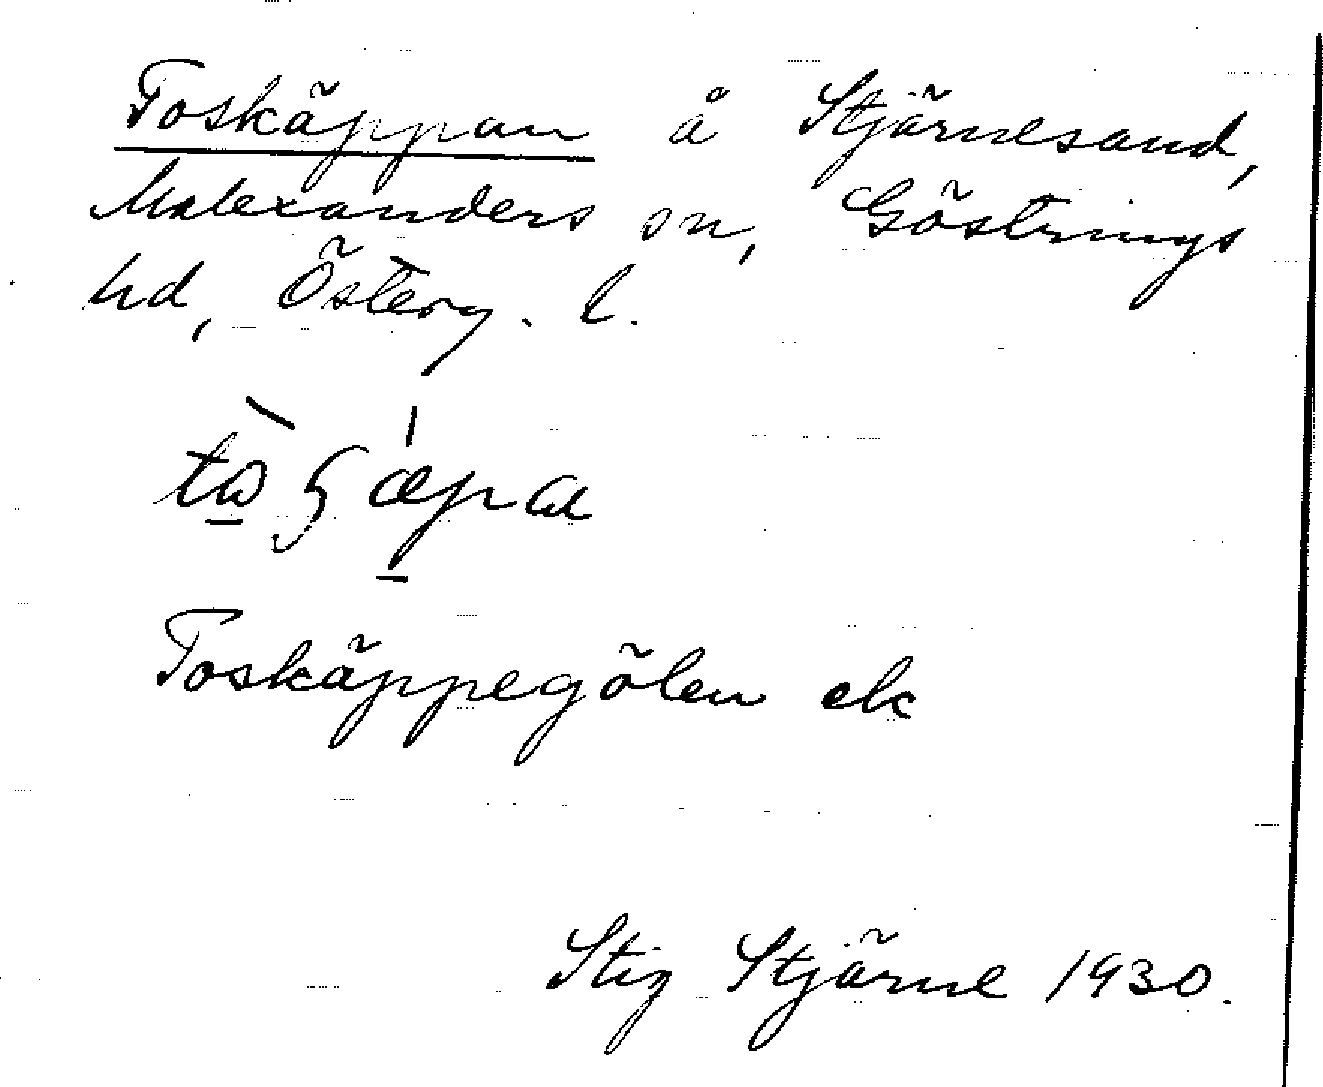 Toskäppan å Stjärnesand,
Malexanders sn, Göstrings
hd, Österg. l.
Toskäppegölen ek
Stig Stjärne 1930.